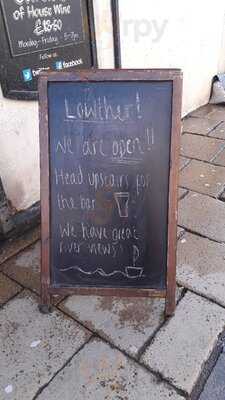 of House Wine
£13.50
Monday-Friday 5-7pm
Follow us
twitter
facebook
Lowther!
We are open!!
Head upstairs for
the bar
We have great
river views!